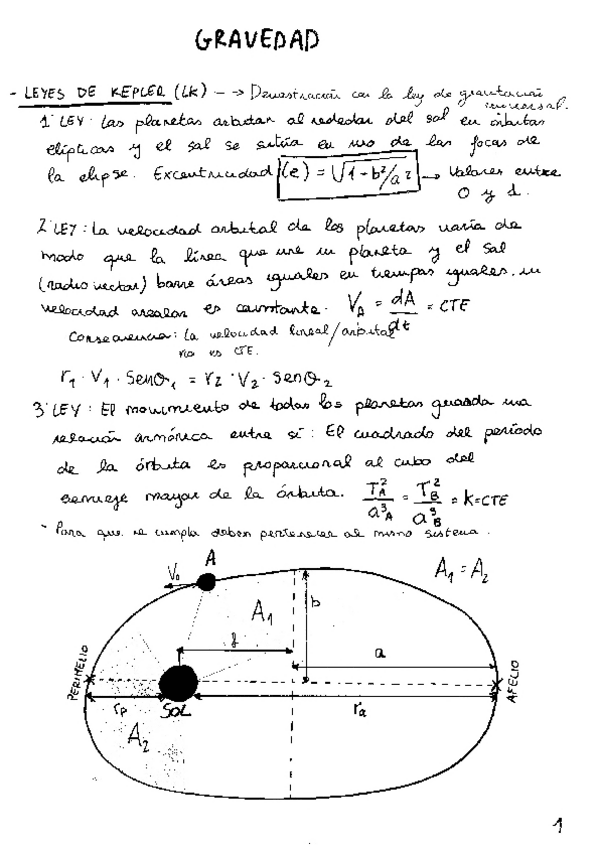 GRAVEDAD
- LEYES DE KEPLER (LK) - -> Demostración con la ley de gravitación
universal.
1ª LEY: Los planetas orbitan al rededor del sol en órbitas
elípticas y el sol se sitúa en uno de los focos de
la elipse. Excentricidad (e) = √1 - b²/a² → Valores entre
0 y 1.
2ª LEY: La velocidad orbital de los planetas varía de
modo que la línea que une un planeta y el sol
(radio vector) barre áreas iguales en tiempos iguales, su
velocidad areolar es constante. V_A = dA/dt = CTE
Consecuencia: La velocidad lineal/orbital
no es CTE.
r₁ · V₁ · SenΘ₁ = r₂ · V₂ · SenΘ₂
3ª LEY: El movimiento de todos los planetas guarda una
relación armónica entre sí: El cuadrado del periodo
de la órbita es proporcional al cubo del
semieje mayor de la órbita. T_A²/a³_A = T_B²/a³_B = K=CTE
- Para que se cumpla deben pertenecer al mismo sistema.
A
A₁ = A₂
V₀
A₁
b
f
a
PERIHELIO
AFELIO
r_p
SOL
r_a
A₂
1